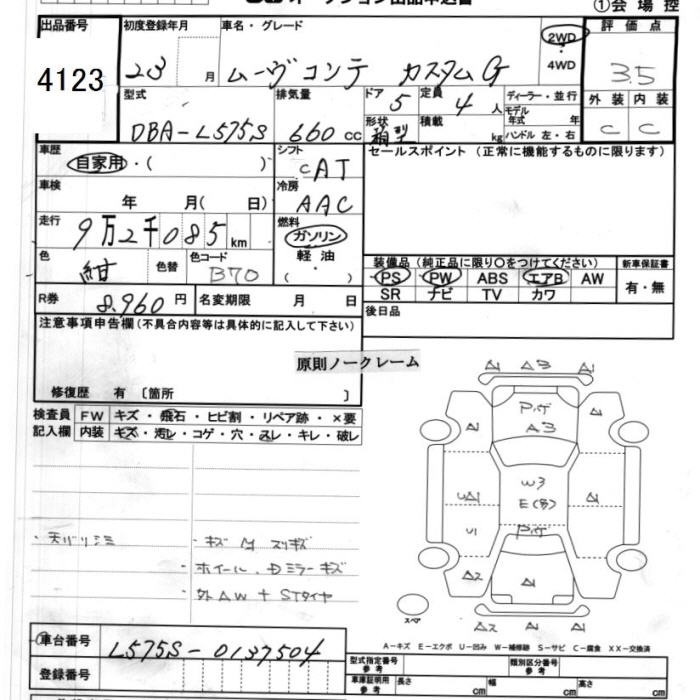 ①会場控
出品番号 4123
初度登録年月 23 月
車名・グレード ムーヴコンテ カスタムG
2WD ・ 4WD
評価点 3.5
外装 C 内装 C
型式 DBA-L575S
排気量 660 cc
ドア 5 定員 4 人
形状 積載 kg
ディーラー・並行
モデル年式 年
ハンドル 左・右
車歴 自家用・( )
シフト CAT
セールスポイント(正常に機能するものに限ります)
車検 年 月( 日)
冷房 AAC
走行 9万2千085 km
燃料 ガソリン 軽油 ( ・ )
色 紺 色替 色コード B70
装備品(純正品に限り〇をつけてください)
PS PW ABS エアB AW
SR ナビ TV カワ
新車保証書 有・無
R券 8,960円 名変期限 月 日
後日品
注意事項申告欄(不具合内容等は具体的に記入して下さい)
原則ノークレーム
修復歴 有〔箇所 〕
検査員記入欄
FW キズ・飛石・ヒビ割・リペア跡・×要
内装 キズ・汚レ・コゲ・穴・スレ・キレ・破レ
A1 A3 A1
A3
A1 A1
W3
UA1 E(多) A1
U1
A2 A1 A1
スペア
A2 A1 A1
・ホイール、Dミラーキズ
・外AW+STタイヤ
A-キズ E-エクボ U-凹み W-補修跡 S-サビ C-腐食 XX-交換済
車台番号 L575S-0137504
登録番号
型式指定番号 参考 類別区分番号 参考
車庫証明用 参考 長さ cm 幅 cm 高さ cm